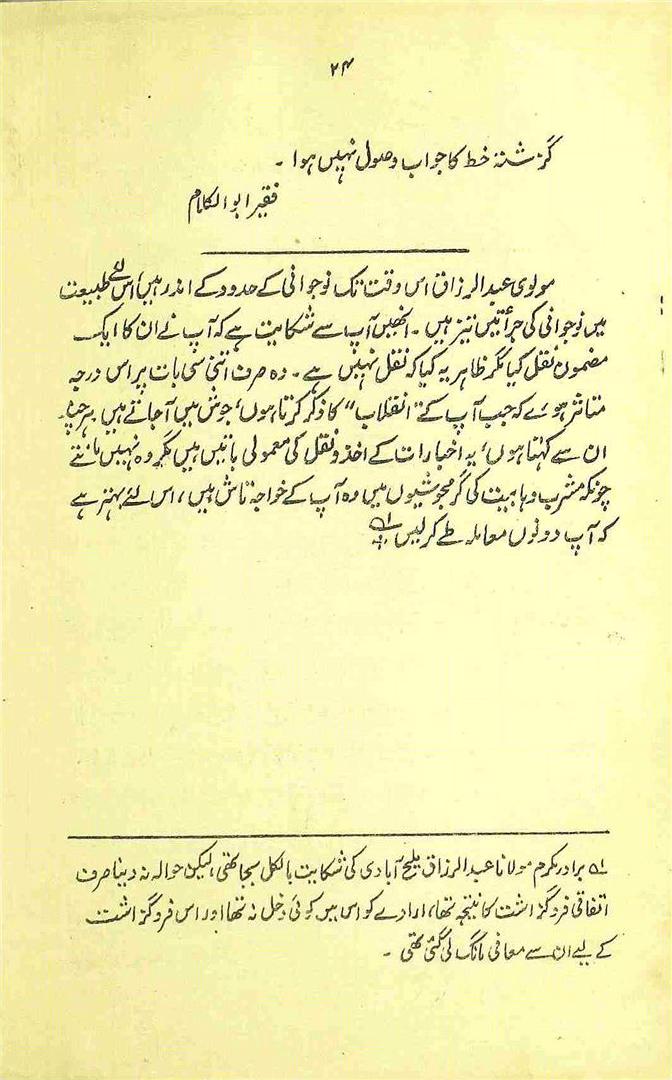 ۲۴
گزشتہ خط کا جواب وصول نہیں ہوا ۔
فقیر ابوالکلام
مولوی عبدالرزاق اس وقت تک نوجوانی کے حدود کے اندر ہیں، اس لئے طبیعت
میں نوجوانی کی جرأتیں تیز ہیں ۔ انھیں آپ سے شکایت ہے کہ آپ نے ان کا ایک
مضمون نقل کیا مگر ظاہر یہ کیا کہ نقل نہیں ہے ۔ وہ صرف اتنی سی بات پر اس درجہ
متاثر ہوئے کہ جب آپ کے "انقلاب" کا ذکر کرتا ہوں، جوش میں آجاتے ہیں ہرچند
ان سے کہتا ہوں، یہ اخبارات کے اخذ و نقل کی معمولی باتیں ہیں مگر وہ نہیں مانتے
چونکہ مشرب وہابیت کی گرمجوشیوں میں وہ آپ کے خواجہ تاش ہیں، اس لئے بہتر ہے
کہ آپ دونوں معاملہ طے کرلیں ؎۱
؎۱ برادر مکرم مولانا عبدالرزاق ملیح آبادی کی شکایت بالکل بجا تھی، لیکن حوالہ نہ دینا صرف
اتفاقی فروگزاشت کا نتیجہ تھا، ارادے کو اس میں کوئی دخل نہ تھا اور اس فروگزاشت
کے لیے ان سے معافی مانگ لی گئی تھی ۔